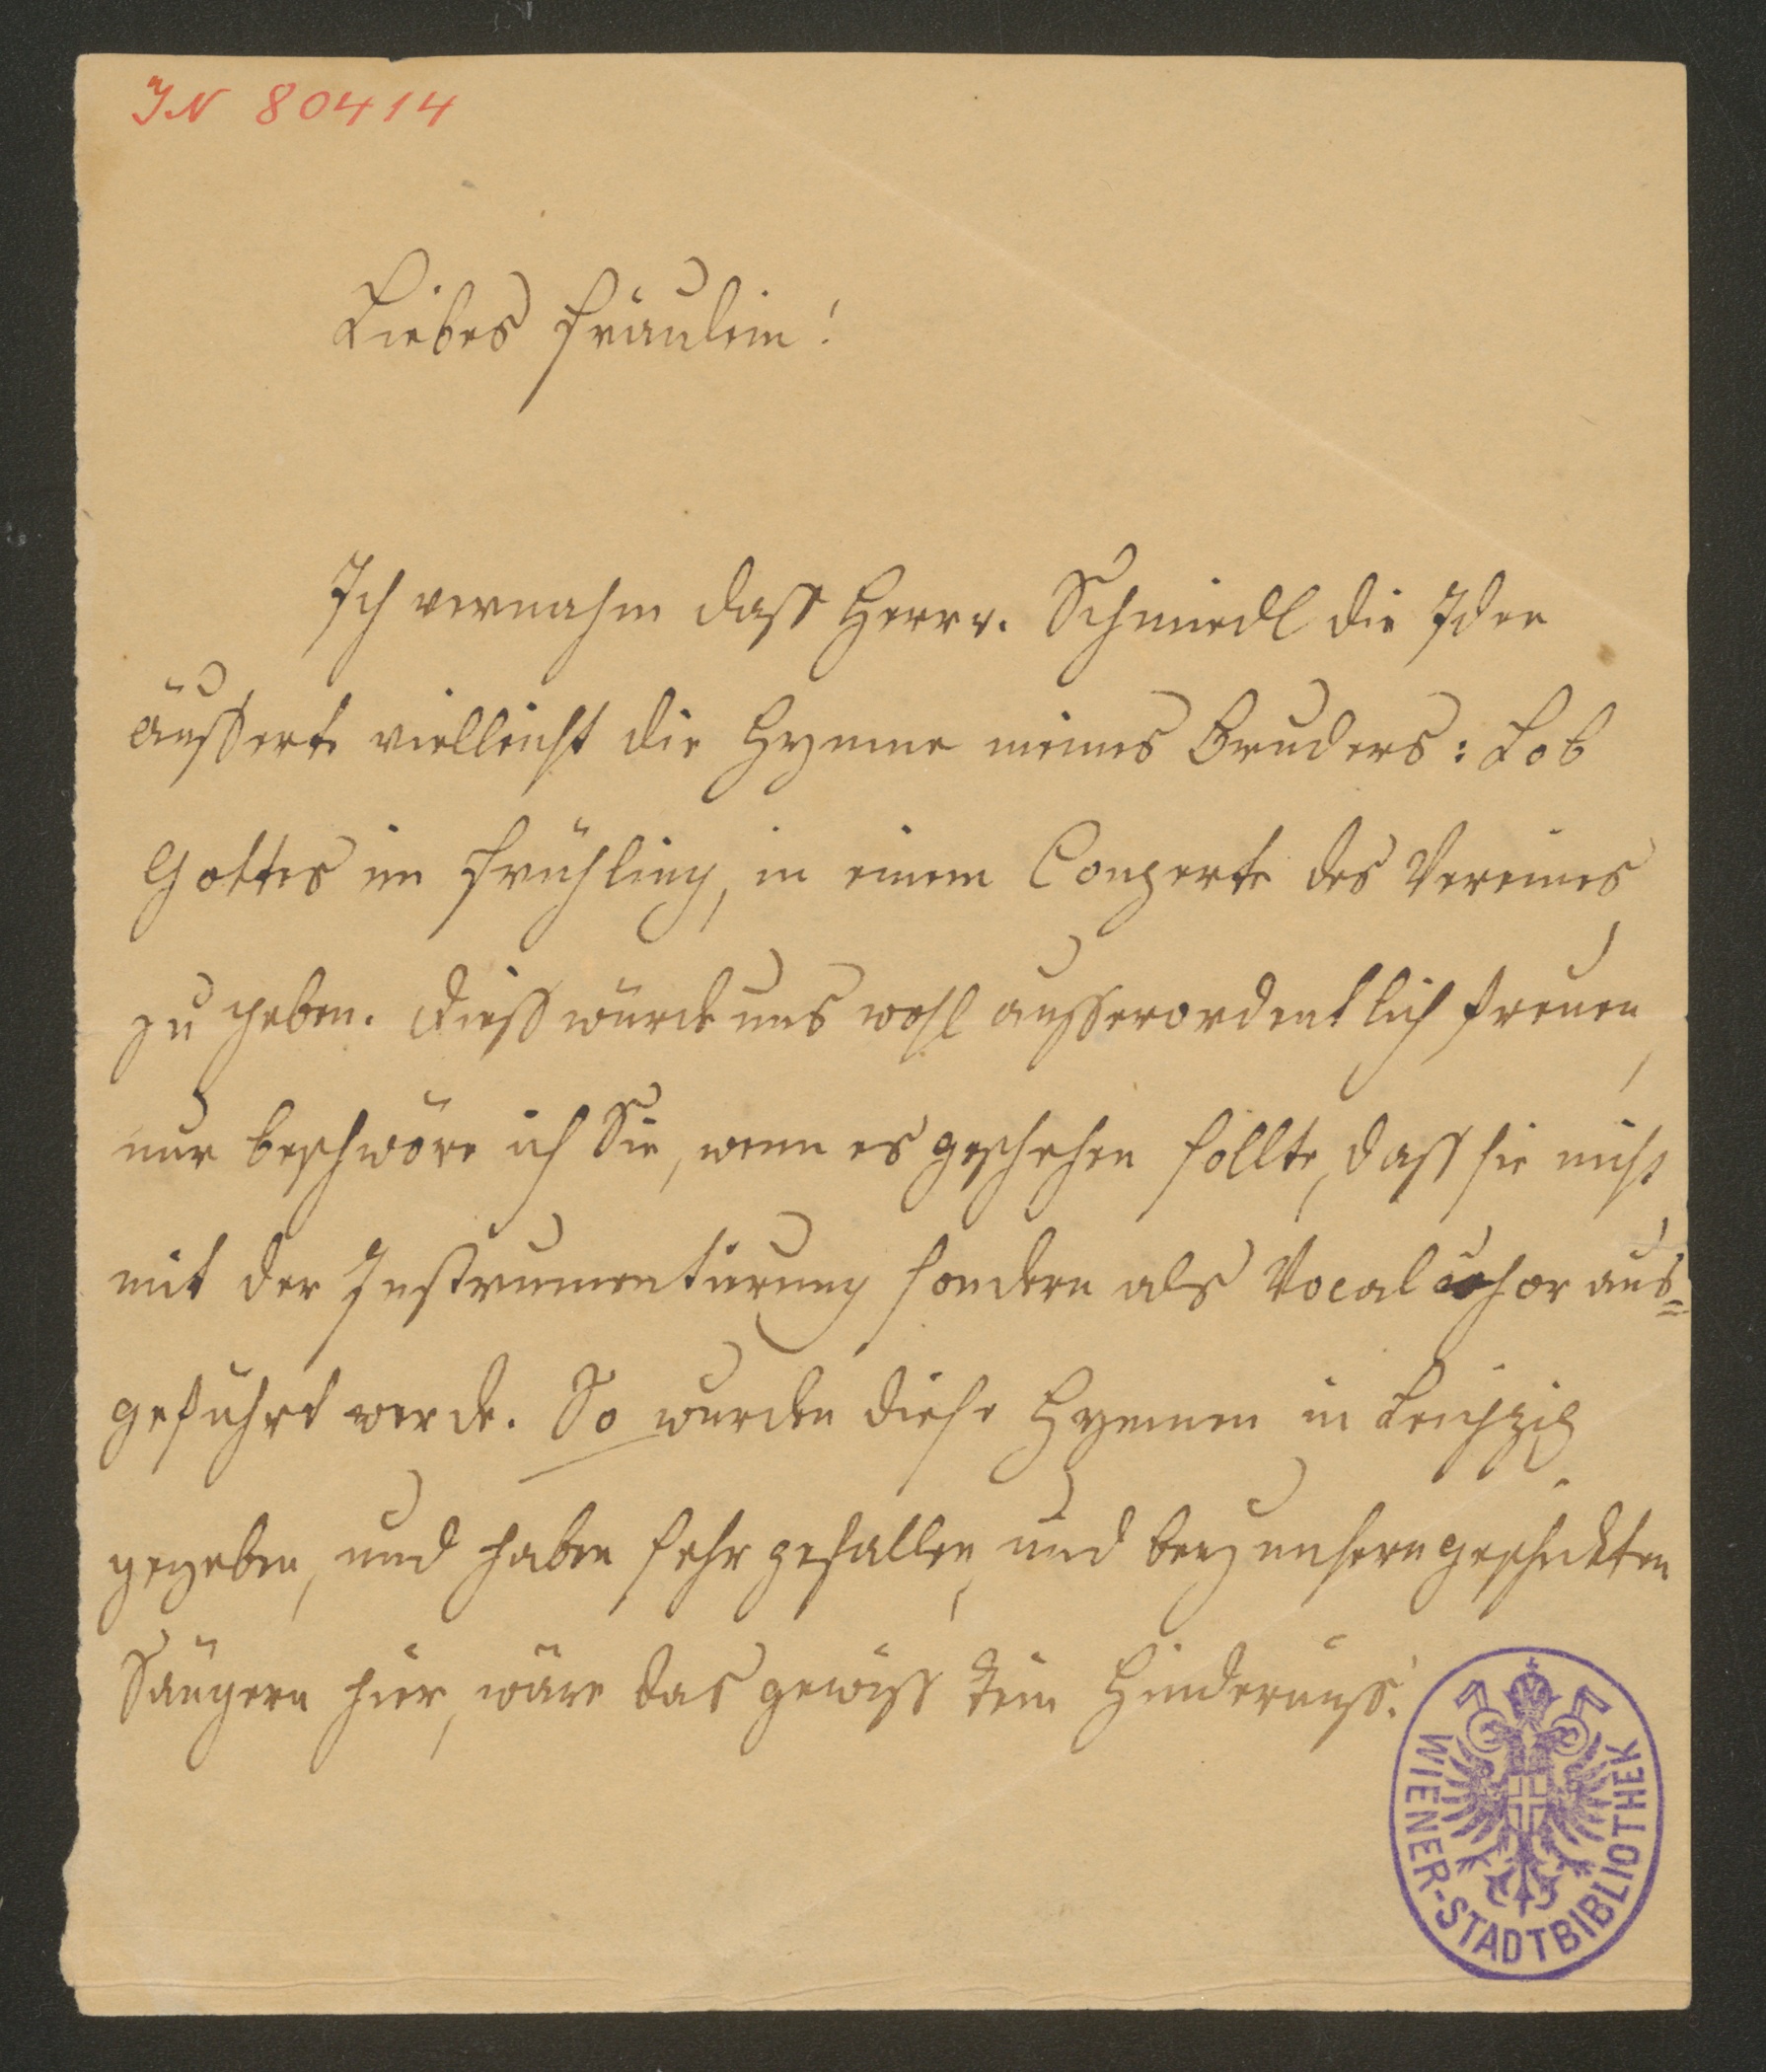 IN 80414
Liebes Fräulein!
Ich vernahm dass Herr v. Schmiedl die Idee
äusserte vielleicht die Hymne meines Bruders: Lob
Gottes im Frühling, in einem Conzerte des Vereines
zu geben. Diess würde uns wohl ausserordentlich freuen,
nur beschwöre ich Sie, wenn es geschehen sollte, dass sie nicht
mit der Instrumentierung sondern als Vocalchor aus=
geführt werde. So wurden diese Hymnen in Leipzig
gegeben, und haben sehr gefallen, und bey unsern geschickten
Sängern hier, wäre das gewiss kein Hinderniss.
WIENER-STADTBIBLIOTHEK